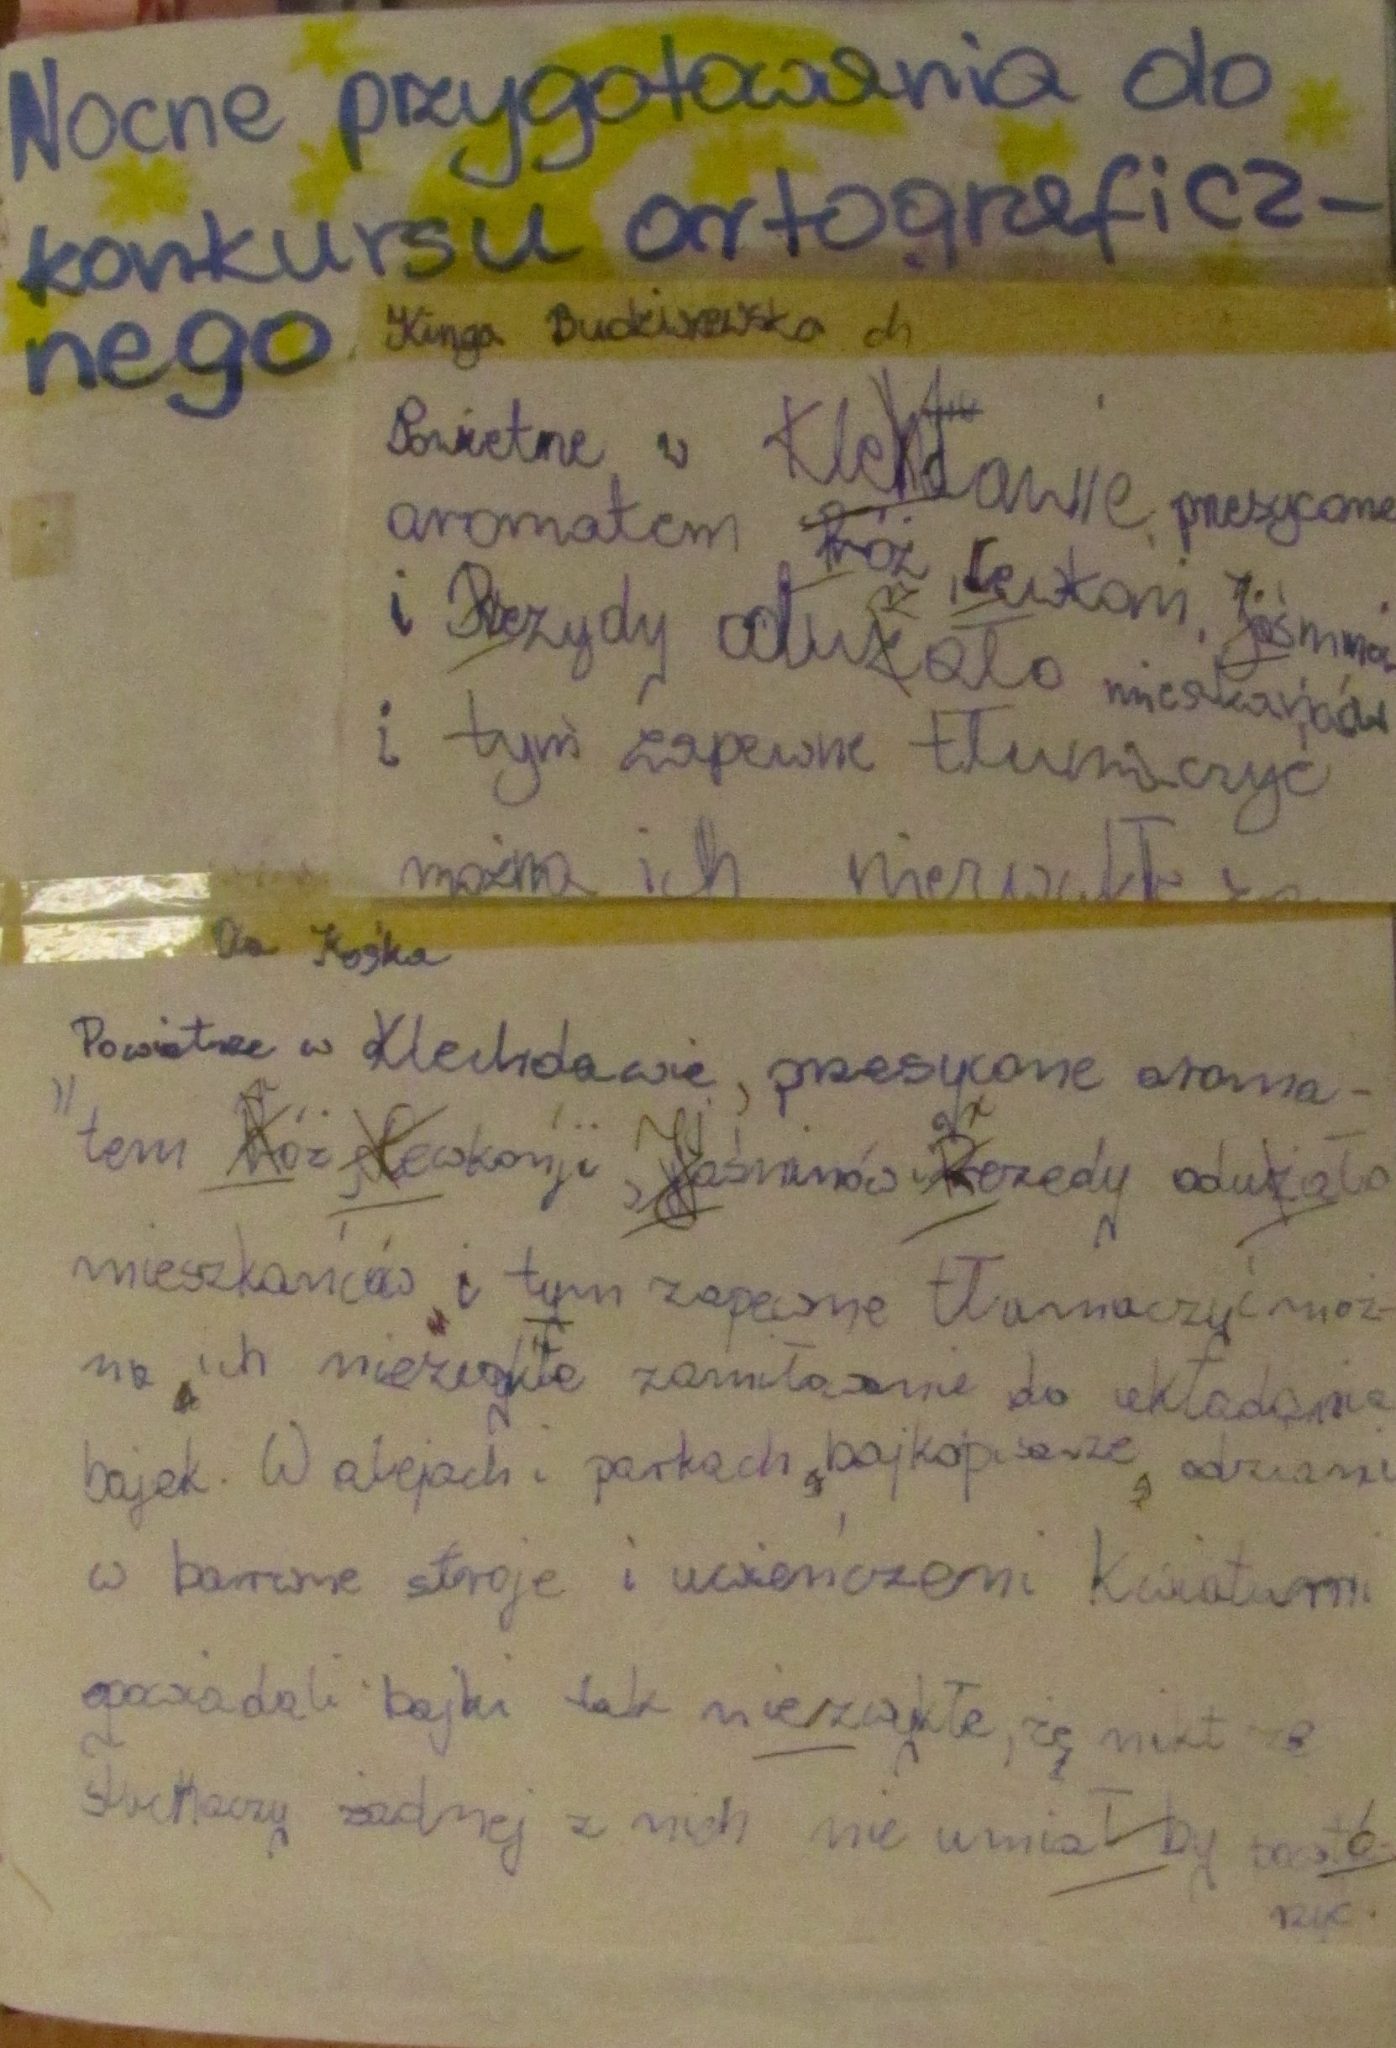 Nocne przygotowania do
konkursu ortograficz-
nego
Kinga
Powietrze w Klechdawie, przesycone
aromatem róż, lewkoni, jaśminów
i Rezydy odurzało mieszkańców
i tym zapewne tłumaczyć
można ich niezwykłe za
Ola Kośka
Powietrze w Klechdawie, przesycone aroma-
tem róż, lewkonji, jaśminów i rezedy odużało
mieszkańców i tym zapewne tłumaczyć moż-
na ich niezwykłe zamiłowanie do układania
bajek. W alejach i parkach bajkopisarze, odziani
w barwne stroje i uwieńczeni kwiatami
opowiadali bajki tak niezwykłe, że nikt ze
słuchaczy żadnej z nich nie umiał by powtó-
rzyć.